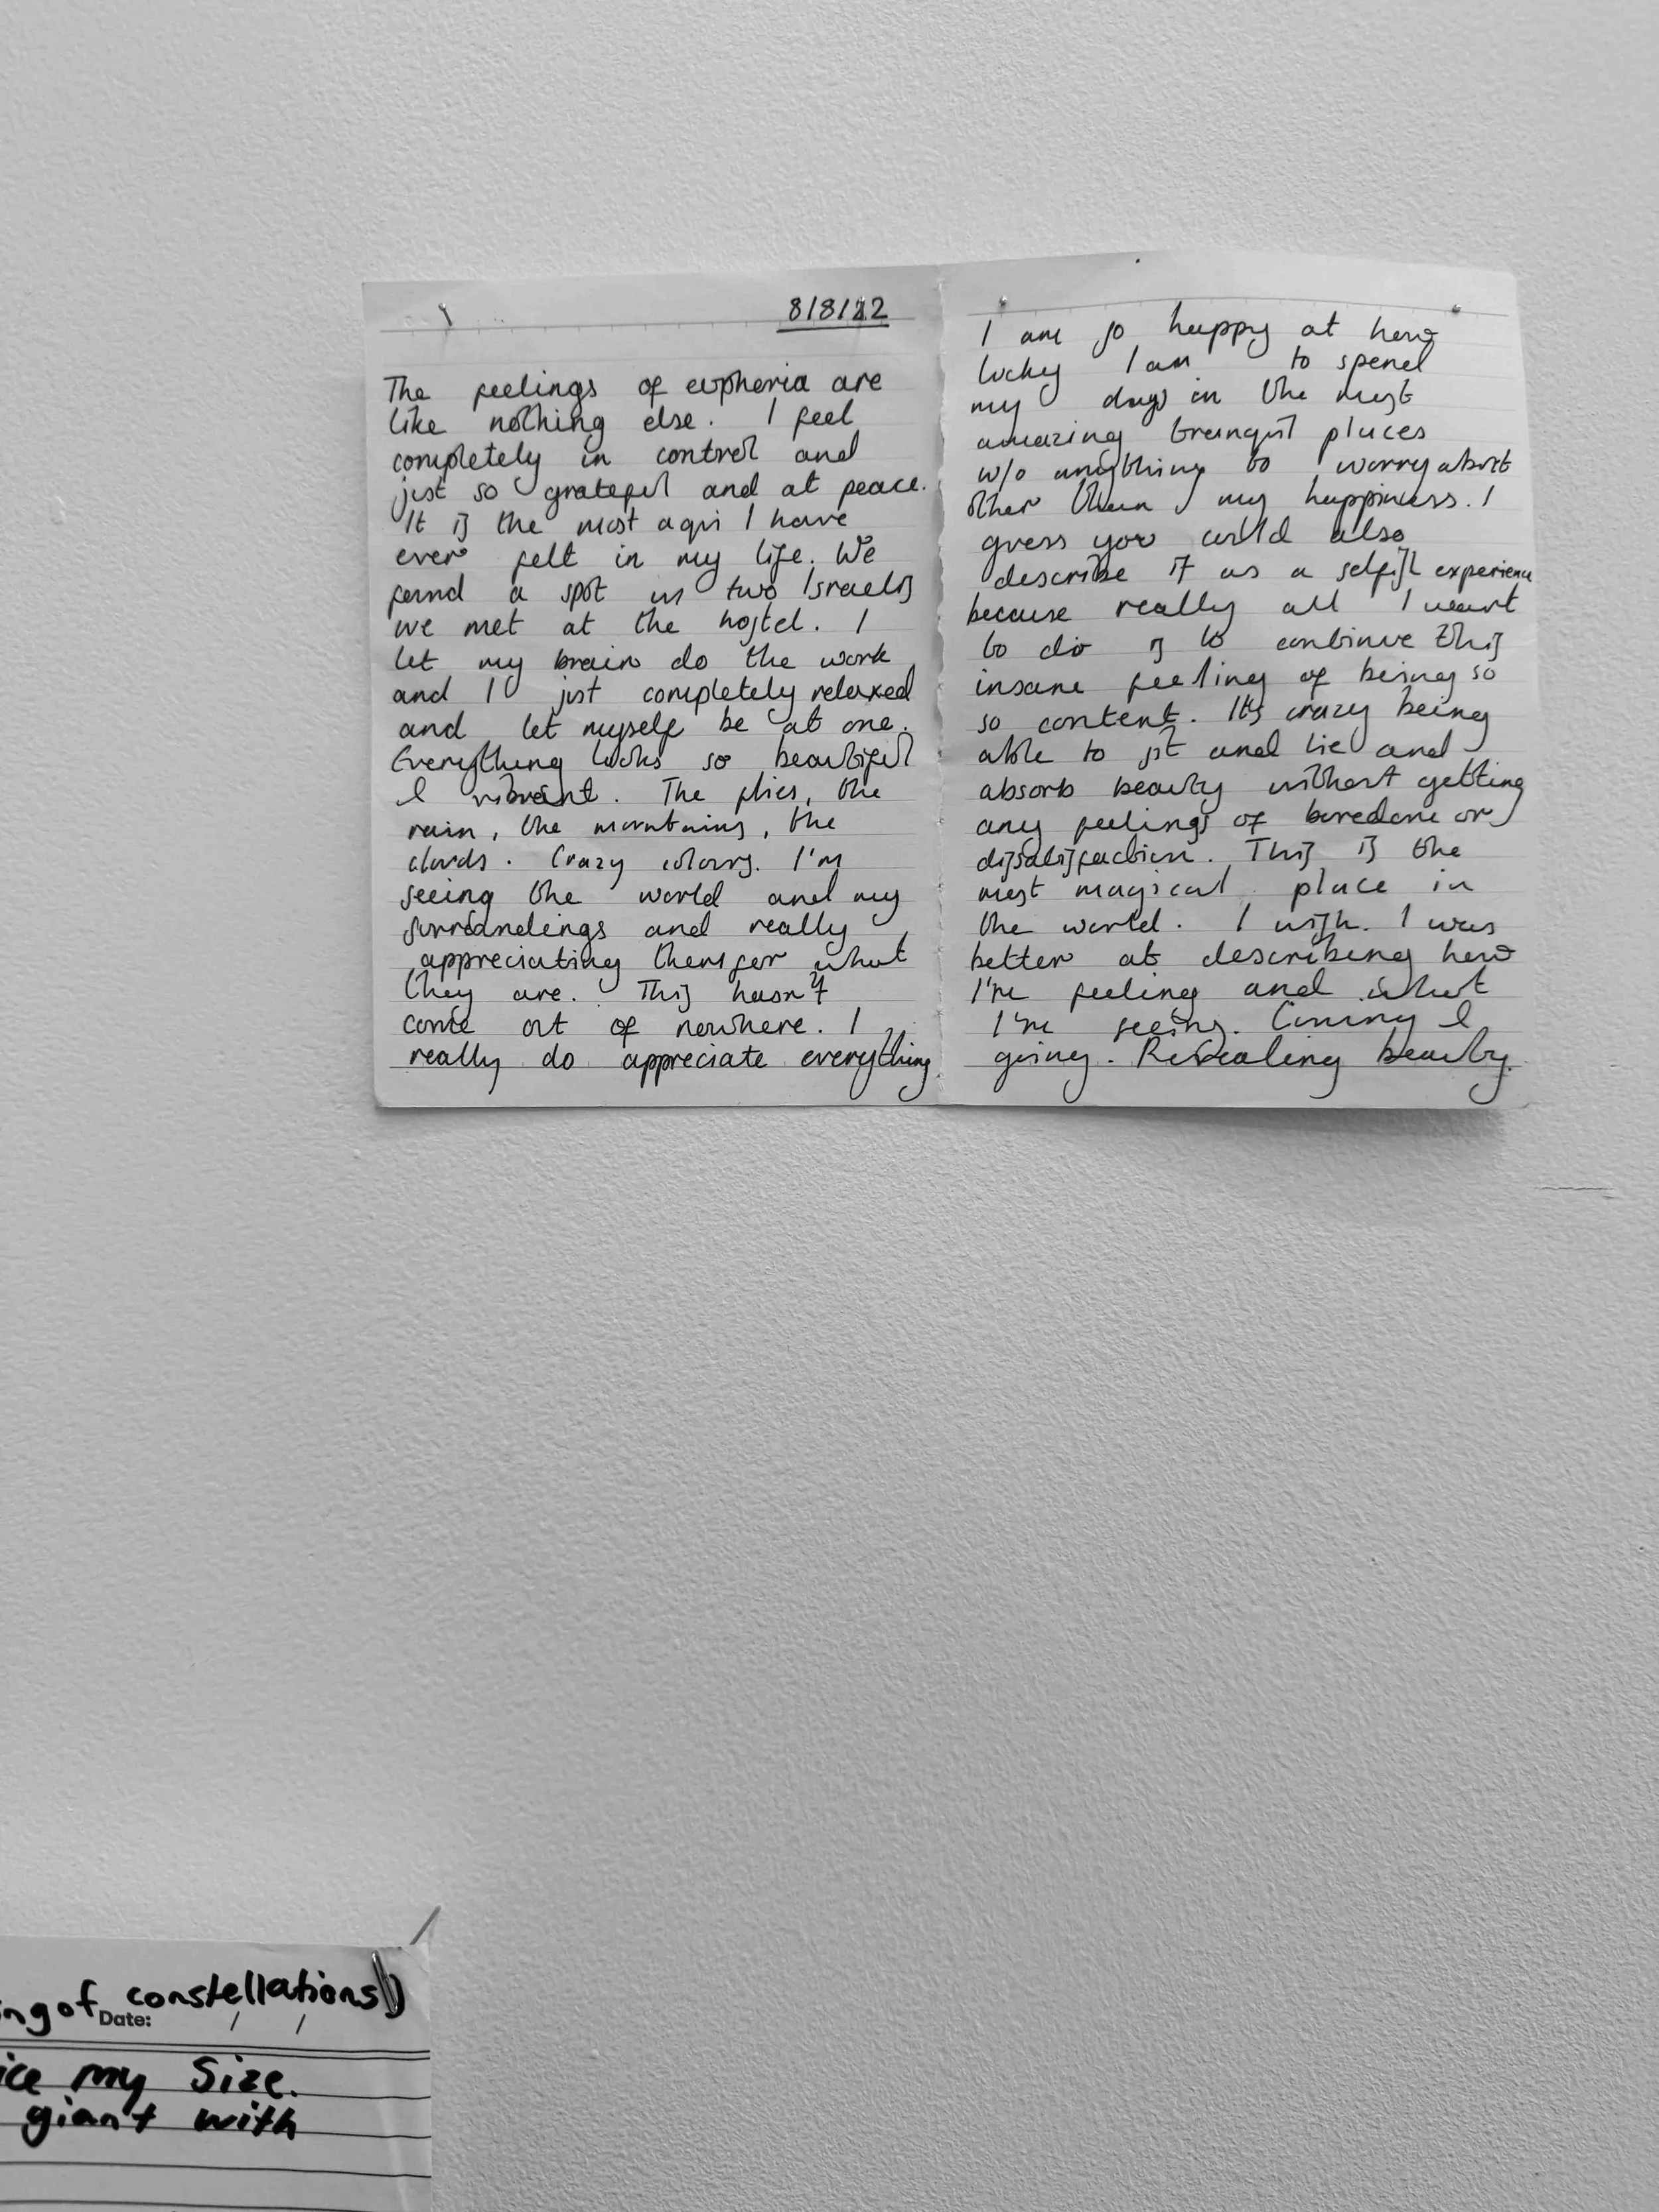 8/8/22
The feelings of euphoria are
like nothing else. I feel
completely in control and
just so grateful and at peace.
It is the most aqui I have
ever felt in my life. We
found a spot w two Israelis
we met at the hostel. I
let my brain do the work
and I just completely relaxed
and let myself be at one.
Everything looks so beautiful
& vibrant. The flies, the
rain, the mountains, the
clouds. Crazy colours. I'm
seeing the world and my
surroundings and really
appreciating them for what
they are. This hasn't
come out of nowhere. I
really do appreciate everything.
I am so happy at how
lucky I am to spend
my days in the most
amazing tranquil places
w/o anything to worry about
other than my happiness. I
guess you could also
describe it as a selfish experience
because really all I want
to do is to continue this
insane feeling of being so
so content. It's crazy being
able to sit and lie and
absorb beauty without getting
any feelings of boredom or
dissatisfaction. This is the
most magical place in
the world. I wish I was
better at describing how
I'm feeling and what
I'm seeing. Coming &
going. Revealing beauty.
ng of constellations)
Date: / /
ice my size.
giant with